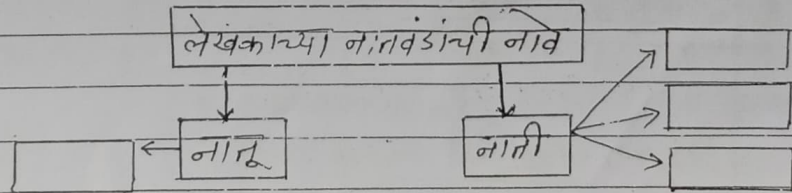 लेखकाच्या नातवंडांची नावे
नातू
नाती